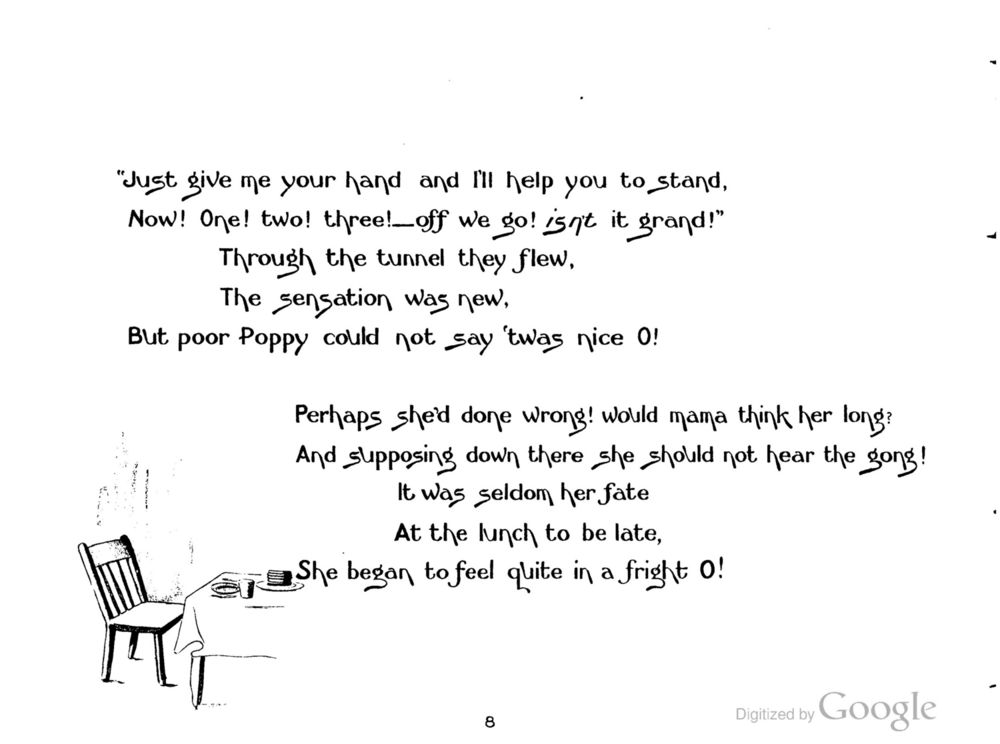 "Just give me your hand and I'll help you to stand,
Now! One! two! three!—off we go! isn't it grand!"
Through the tunnel they flew,
The sensation was new,
But poor Poppy could not say 'twas nice O!
Perhaps she'd done wrong! would mama think her long?
And supposing down there she should not hear the gong!
It was seldom her fate
At the lunch to be late,
She began to feel quite in a fright O!
8
Digitized by Google